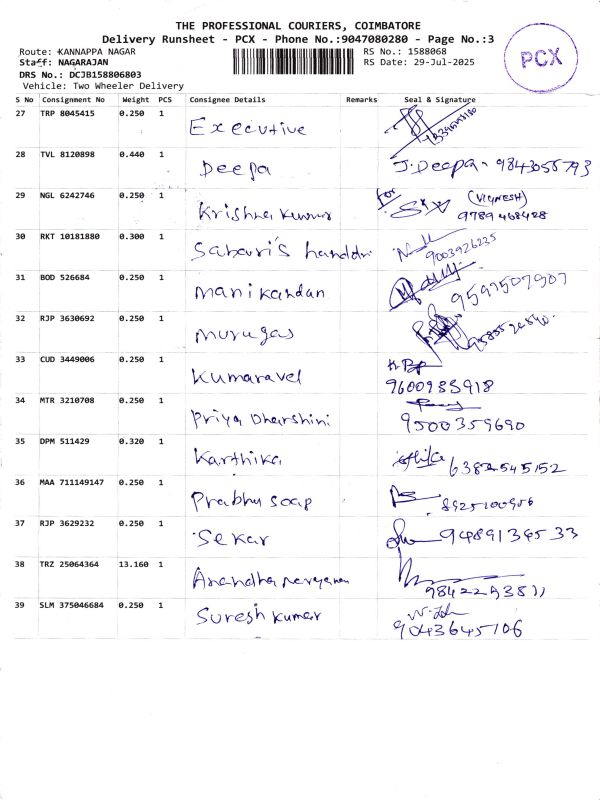 THE PROFESSIONAL COURIERS, COIMBATORE
Delivery Runsheet - PCX - Phone No.:9047080280 - Page No.:3
Route: KANNAPPA NAGAR RS No.: 1588068
Staff: NAGARAJAN RS Date: 29-Jul-2025
DRS No.: DCJB158806803
Vehicle: Two Wheeler Delivery
PCX
S No Consignment No Weight PCS Consignee Details Remarks Seal & Signature
27 TRP 8045415 0.250 1 Executive
28 TVL 8120898 0.440 1 Deepa J.Deepa - 9843055793
29 NGL 6242746 0.250 1 Krishna kumar for (VIGNESH)
9789468428
30 RKT 10181880 0.300 1 Sabari's
9003926235
31 BOD 526684 0.250 1 Manikandan 9597507907
32 RJP 3630692 0.250 1 Murugas
33 CUD 3449006 0.250 1 Kumaravel
9600933918
34 MTR 3210708 0.250 1 Priya Dharshini
9500359690
35 DPM 511429 0.320 1 Karthika 6382545152
36 MAA 711149147 0.250 1 Prabhu soap 8925100906
37 RJP 3629232 0.250 1 Sekar 9489134533
38 TRZ 25064364 13.160 1 Anandha narayanan
9842243811
39 SLM 375046684 0.250 1 Suresh kumar
9043645106